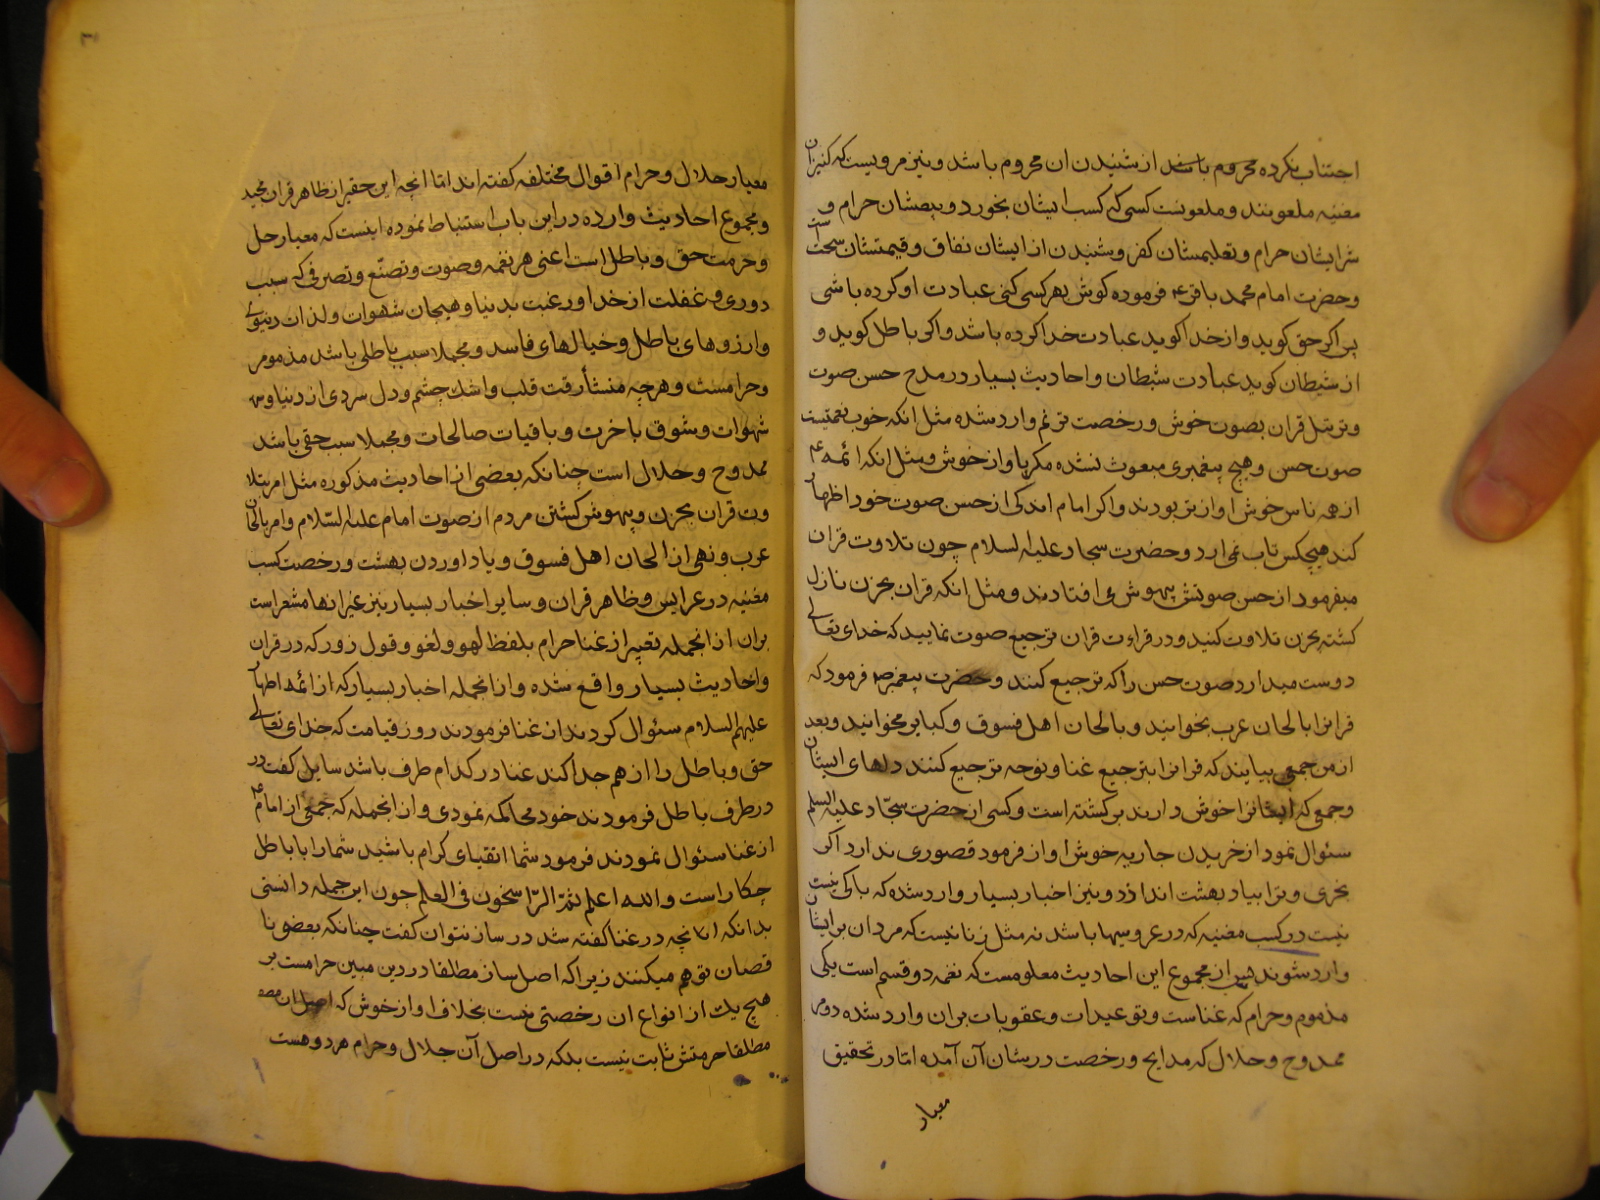 اجتناب نکرده محروم باشد از شنیدن ان محروم باشد و نیز مرویست که کنیزان
مغنیه ملعونند و ملعونست کسی که کسب ایشان بخورد و بیعشان حرام و
شرایشان حرام و تعلیمشان کفر و شنیدن از ایشان نفاق و قیمتشان سحت است
و حضرت امام محمد باقر ع فرموده کوش بهر کسی کنی عبادت او کرده باشی
پس اکر حق کوید و از خدا کوید عبادت خدا کرده باشد و اکر باطل کوید و
از شیطان کوید عبادت شیطان و احادیث بسیار در مدح حسن صوت
و ترتیل قران بصوت خوش و رخصت ترنم وارد شده مثل انکه خوب نعمتیست
صوت حسن و هیچ پیغمبری مبعوث نشده مکر باواز خوش و مثل انکه ائمه ع
از همه ناس خوش اوازتر بودند و اکر امام اندکی از حسن صوت خود اظهار
کند هیچکس تاب نمی ارد و حضرت سجاد علیه السلام چون تلاوت قران
میفرمود از حسن صوتش بیهوش می افتادند و مثل انکه قران بحزن نازل
کشته بحزن تلاوت کنید و در قراءت قران ترجیع صوت نمایید که خدای تعالی
دوست میدارد صوت حسن را که ترجیع کنند و حضرت پیغمبر ص فرمود که
قرانرا بالحان عرب بخوانید و بالحان اهل فسوق و کبایر مخوانید و بعد
از من جمعی بیایند که قرانرا بترجیع غنا و نوحه ترجیع کنند دلهای ایشان
و جمعی که ایشانرا خوش دارند برکشته است و کسی از حضرت سجّاد علیه السلم
سئوال نمود از خریدن جاریه خوش اواز فرمود قصوری ندارد اکر
بخری و ترا بیاد بهشت اندازد و نیز اخبار بسیار وارد شده که باکی نیست
نیست در کسب مغنیه که در عروسیها باشد نه مثل زنانیست که مردان بر ایشان
وارد شوند پس از مجموع این احادیث معلومست که نغمه دو قسم است یکی
مذموم و حرام که غناست و توعیدات و عقوبات بران وارد شده دوم
ممدوح و حلال که مدایح و رخصت در شان آن آمده امّا در تحقیق
معیار
معیار حلال و حرام اقوال مختلفه کفته اند امّا انچه این حقیر از ظاهر قران مجید
و مجموع احادیث وارده در این باب استنباط نموده اینست که معیار حل
و حرمت حق و باطل است اعنی هر نغمه و صوت و تصنّع و تصرفی که سبب
دوری و غفلت از خدا و رغبت بدنیا و هیجان شهوات و لذات دنیوی
و ارزوهای باطل و خیالهای فاسد و مجملا سبب باطلی باشد مذموم
و حرامست و هر چه منشأ رقت قلب و اشك چشم و دل سردی از دنیا و
شهوات و شوق باخرت و باقیات صالحات و مجملا سبب حقی باشد
ممدوح و حلال است چنانکه بعضی از احادیث مذکوره مثل امر بتلا
وت قران بحزن و بیهوش کشتن مردم از صوت امام علیه السّلام و امر بالحان
عرب و نهی از الحان اهل فسوق و یاد اوردن بهشت و رخصت کسب
مغنیه در عرایس و ظاهر قران و سایر اخبار بسیار نیز غیر انها مشعر است
بران از انجمله تعبیر از غنا حرام بلفظ لهو و لغو و قول زور که در قران
و احادیث بسیار واقع شده و از انجمله اخبار بسیار که از ائمه اطهار
علیهم السلام سئوال کردند از غنا فرمودند روز قیامت که خدای تعالی
حق و باطل را از هم جدا کند غنا در کدام طرف باشد سایل کفت در
در طرف باطل فرمودند خود محاکمه نمودی و از انجمله که جمعی از امام ع
از غنا سئوال نمودند فرمود شما اتقیای کرام باشید شما را با باطل
چکار است و الله اعلم ثمّ الرّاسخون فی العلم چون این جمله دانستی
بدانکه انچه در غنا کفته شد در ساز نتوان کفت چنانکه بعضی نا
قصان توهم میکنند زیرا که اصل ساز مطلقا در دین مبین حرامست بر
هیچ یك از انواع ان رخصتی نیست بخلاف اواز خوش که اصل ان
مطلقا حرمتش ثابت نیست بلکه در اصل آن حلال و حرام هر دو هست